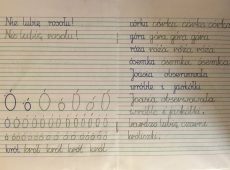 Nie lubię rosołu!
Nie lubię rosołu!
Ó Ó Ó Ó Ó Ó Ó
król król król król król
córka córka córka córka
góra góra góra góra
róża róża róża róża
ósemka ósemka ósemka
Joasia obserwowała
wróble i jaskółki.
Joasia obserwowała
wróble i jaskółki.
bardzo lubię czarne